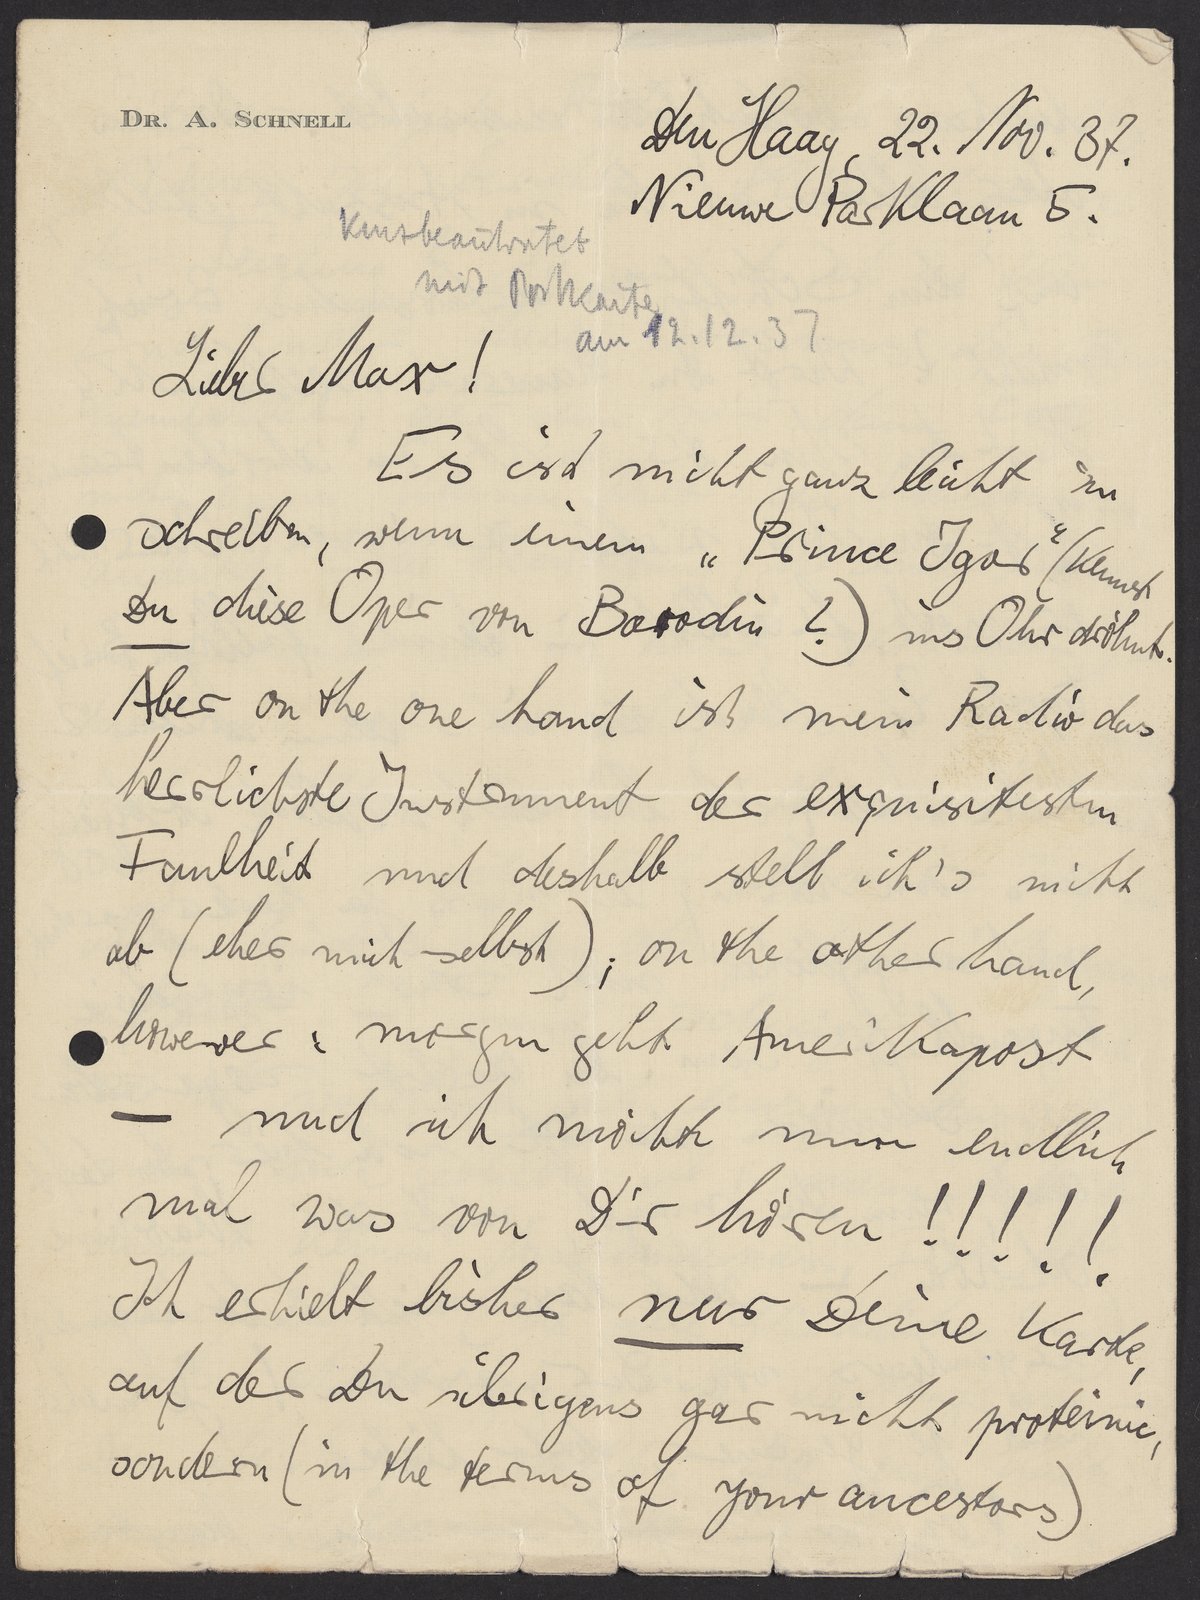 DR. A. SCHNELL
Den Haag, 22. Nov. 37.
Nieuwe Parklaan 5.
Kurz beantwortet
mit Postkarte
am 12.12.37
Lieber Max!
Es ist nicht ganz leicht zu
schreiben, wenn einem „Prince Igor“ (Kennst
Du diese Oper von Borodin?) ins Ohr dröhnt.
Aber on the one hand ist mein Radio das
herrlichste Instrument der exquisitesten
Faulheit und deshalb stell ich's nicht
ab (eher mich selbst); on the other hand,
however: morgen geht Amerikapost
— und ich möchte nun endlich
mal was von Dir hören!!!!!
Ich erhielt bisher nur Deine Karte,
auf der Du übrigens gar nicht proteinic,
sondern (in the terms of your ancestors)